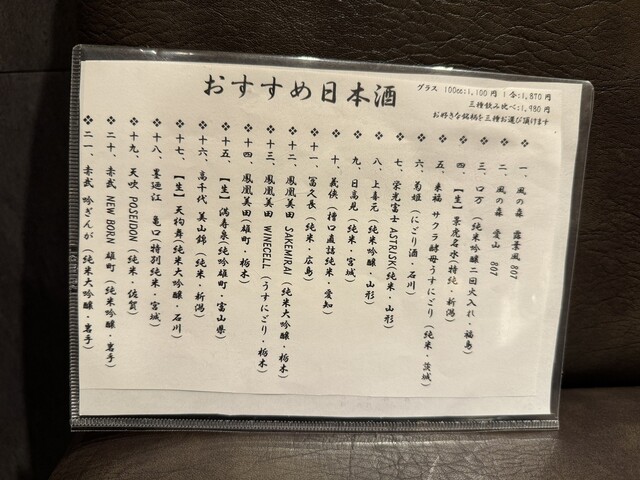 おすすめ日本酒
グラス 100cc:1,100円 1合:1,870円
三種飲み比べ:1,980円
お好きな銘柄を三種お選び頂けます
一、風の森 露葉風 807
二、風の森 愛山 807
三、ロ万 (純米吟醸二回火入れ・福島)
四、【生】景虎名水(特純・新潟)
五、来福 サクラ酵母うすにごり (純米・茨城)
六、菊姫 (にごり酒・石川)
七、栄光冨士 ASTRISK(純米・山形)
八、上喜元 (純米吟醸・山形)
九、日高見 (純米・宮城)
十、義侠 (槽口直詰純米・愛知)
十一、冨久長 (純米・広島)
十二、鳳凰美田 SAKEMIRAI (純米大吟醸・栃木)
十三、鳳凰美田 WINECELL (うすにごり・栃木)
十四、鳳凰美田(雄町・栃木)
十五、【生】満寿泉(純吟雄町・富山県)
十六、高千代 美山錦 (純米・新潟)
十七、【生】天狗舞(純米大吟醸・石川)
十八、墨廼江 亀口特別純米・宮城)
十九、天吹 POSEIDON (純米・佐賀)
二十、赤武 NEW BORN 雄町 (純米吟醸・岩手)
二一、赤武 吟ぎんが (純米大吟醸・岩手)